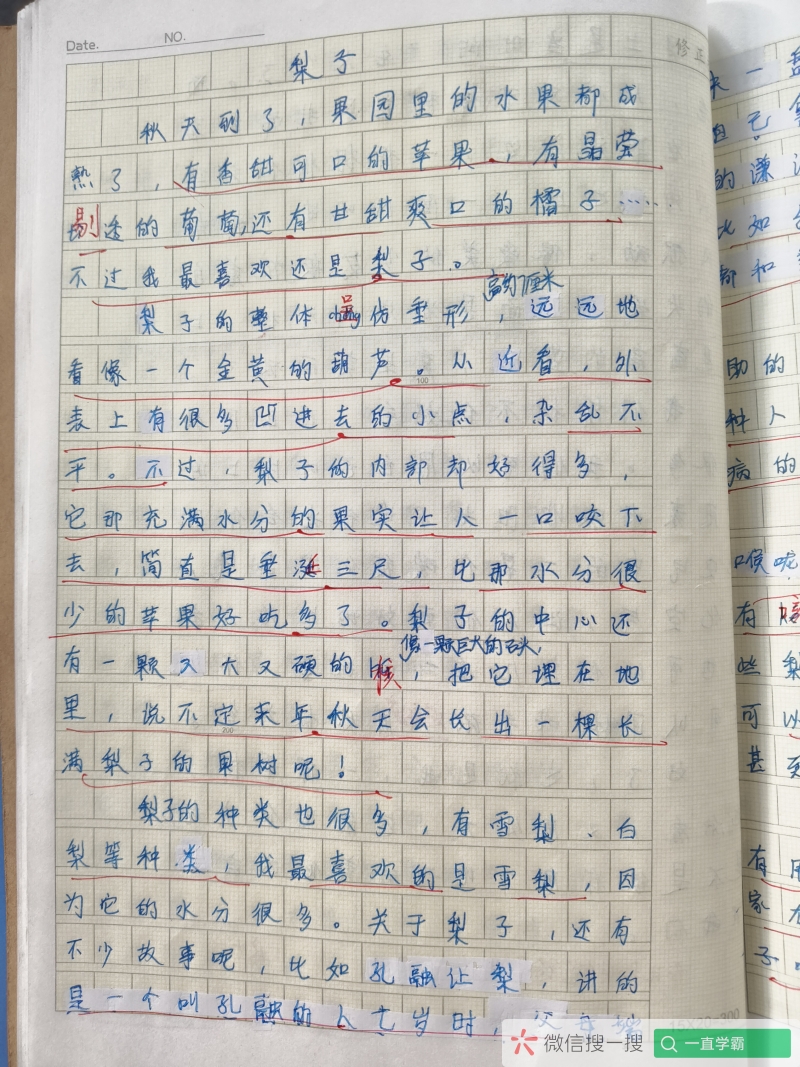 Date. NO.
修正
梨子
秋天到了，果园里的水果都成
熟了，有香甜可口的苹果，有晶莹
剔透的葡萄，还有甘甜爽口的橘子……
不过我最喜欢还是梨子。
高约7厘米
梨子的整体呈仿垂形，远远地
看像一个金黄的葫芦。从近看，外
表上有很多凹进去的小点，杂乱不
平。不过，梨子的内部却好得多，
它那充满水分的果实让人一口咬下
去，简直是垂涎三尺，比那水分很
少的苹果好吃多了。梨子的中心还
像一颗巨大的石头，
有一颗又大又硬的核，把它埋在地
里，说不定来年秋天会长出一棵长
200
满梨子的果树呢！
梨子的种类也很多，有雪梨、白
梨等种类，我最喜欢的是雪梨，因
为它的水分很多。关于梨子，还有
不少故事呢，比如孔融让梨，讲的
是一个叫孔融的人七岁时，父母端
微信搜一搜
一直学霸
100
助的
种人
病的
喉呢
有
些梨
可以
甚至
有用